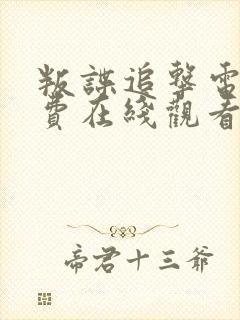 叛諜追擊電
費在綫觀看
帝君十三爺